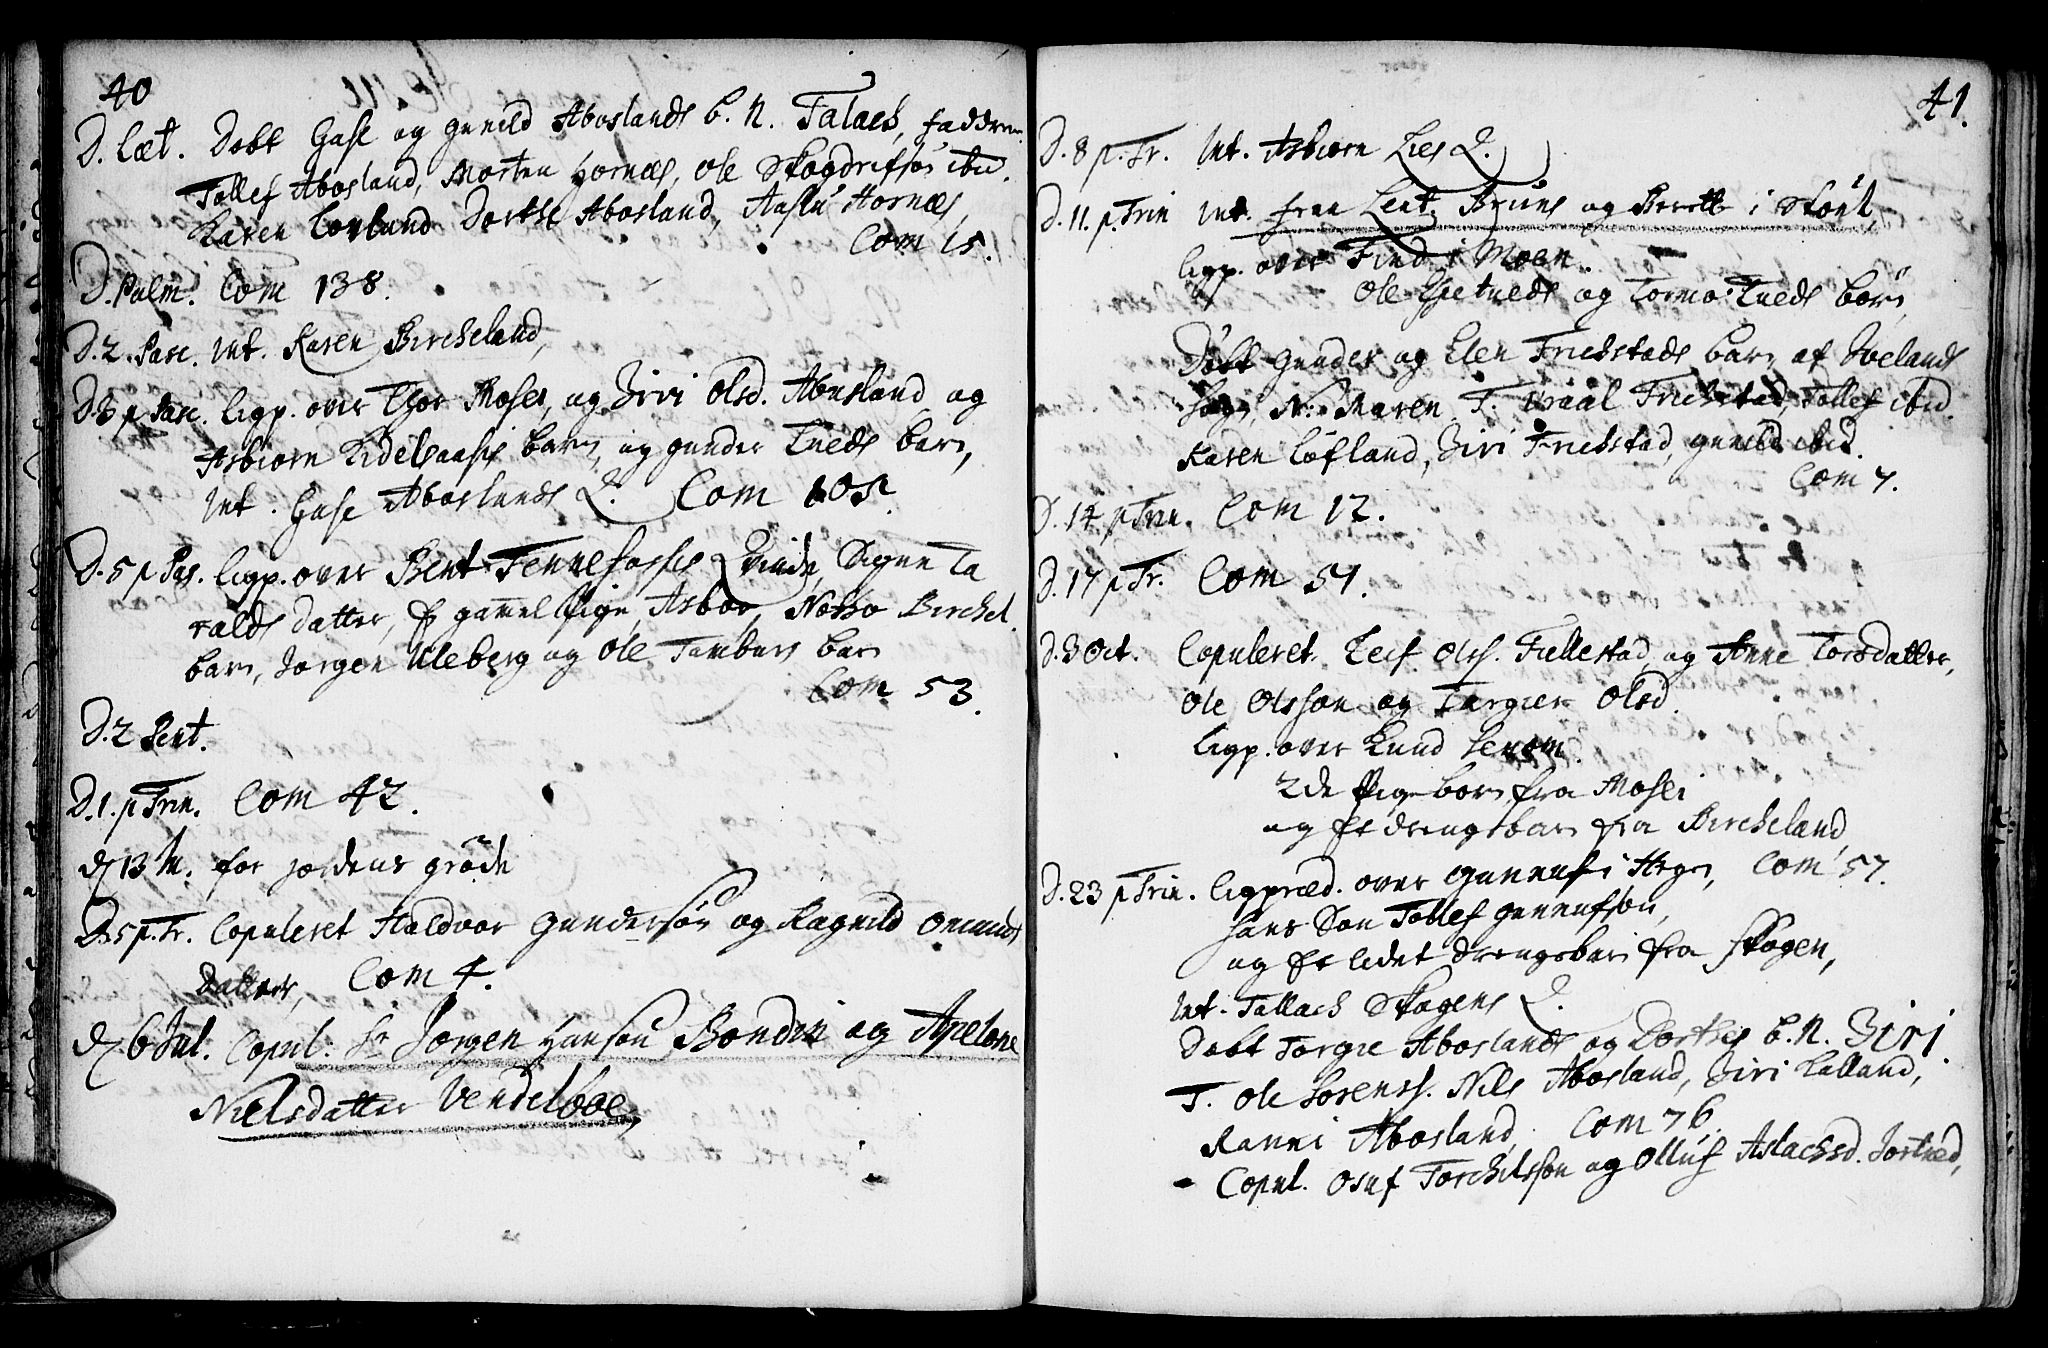 40
D. Læt. Døbt Gase og Gunild Aboslands b. N. Talach, faddrene
Tollef Abosland, Morten Hornæs, Ole Skogdrifsøn ibid.
Karen Lovland Dorthe Abosland, Aaslu Hornæs,
Com 15.
D. Palm. Com 138.
D. 2. Pasc. Int. Karen Bircheland,
D. 3 p Pasc. Ligp. over Thor Mosei, og Siri Olsd. Abusland og
Asbiorn Kidelsaasis barn, og Gunder Tueds barn,
Int. Gase Aboslands Q. Com 105.
D. 5 p Pas. Ligp. over Bent Fennefosses Qvinde, Signe Ta
ralds datter, Et gamel Pige, Asboe, Noso Birchel.
barn, Jørgen Uleberg og Ole barn
Com 53.
D. 2 Pent.
D. 1. p Trin. Com 42.
d 13 for jordens grøde
D. 5 p. Tr. Copuleret Haldvor Gundersøn og Ragnild Omunds
Datter, Com 4.
d 6 Jul. Copul. Sr Jørgen Hansøn Bondin og Apelone
Nielsdatter Vendelboe,
41.
D. 8 p. Tr. Int. Asbiorn Lies Q.
D. 11. p. Trin Int. fru Leut. Bruns og Berette i
Ligp. over Find i Moen.
Ole Tueds og Tormo Tueds børn,
Døbt Gunder og Elen Frichstads barn af Iveland
Sogn, N. Maren T. Fricstad, Tollef ibid.
Karen Løfland, Siri Frichstad, Gunild ibid.
Com 7.
D. 14 p Trin. Com 12.
D. 17 p Tr. Com 51.
D. 3 Oct. Copuleret. Leif Ols. Fillestad og Anne Torsdatter,
Ole Olsson og Torgier Olsd.
Ligp. over Knud Senom.
2de Pigebørn fra Mosei
og Et drengebarn fra Bircheland,
D. 23 p Trin. Ligpræd. over Gunnuf i Com 57.
hans Søn Tollef Gunnufsøn,
og Et lidet drengebarn fra Skogen,
Int. Tallach Skogens Q.
Døbt Torgie Aboslands og Dorthes b. N. Siri
T. Ole Sorenss. Nils Abosland, Siri Lalland,
Ranni Abosland, Com 76.
- Copul. Osuf Torchilsson og Olluf Aslachsd. Jortved,